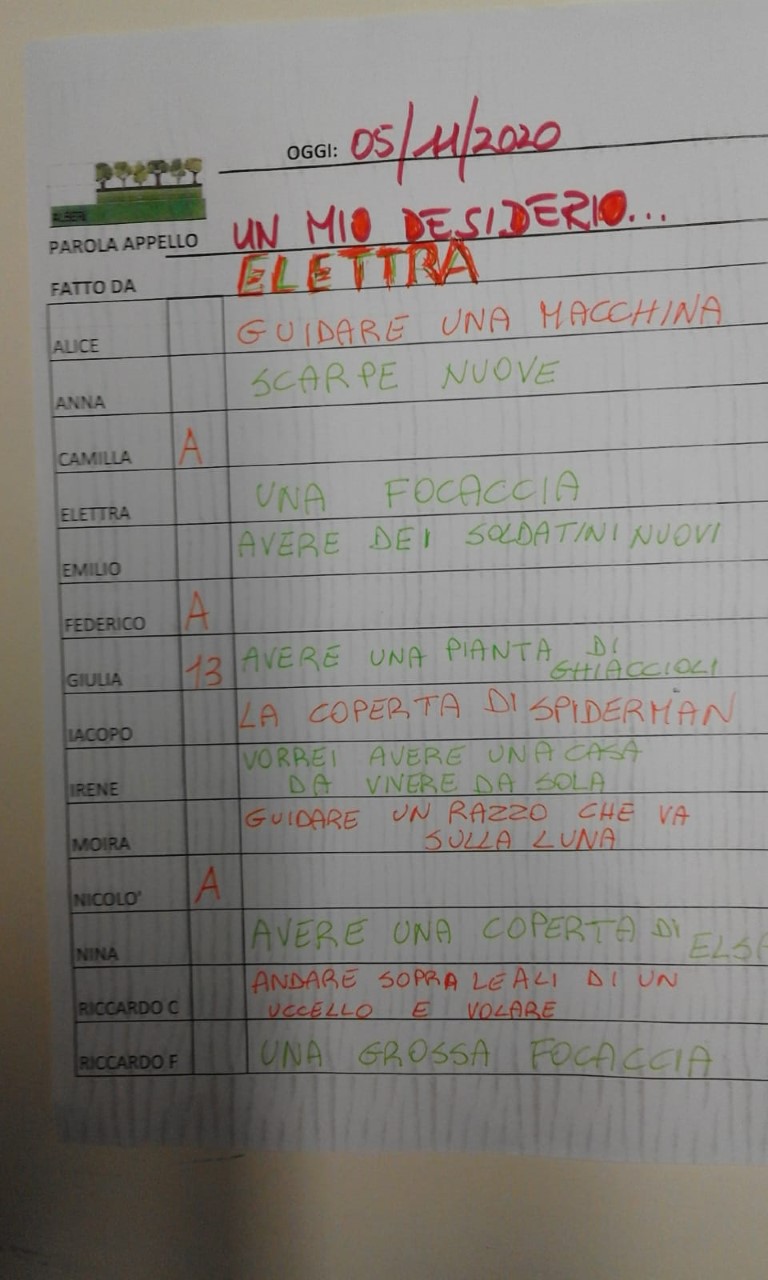 OGGI: 05/11/2020
ALBERI
PAROLA APPELLO UN MIO DESIDERIO...
FATTO DA ELETTRA
ALICE GUIDARE UNA MACCHINA
ANNA SCARPE NUOVE
CAMILLA A
ELETTRA UNA FOCACCIA
EMILIO AVERE DEI SOLDATINI NUOVI
FEDERICO A
GIULIA 13 AVERE UNA PIANTA DI
GHIACCIOLI
IACOPO LA COPERTA DI SPIDERMAN
IRENE VORREI AVERE UNA CASA
DA VIVERE DA SOLA
MOIRA GUIDARE UN RAZZO CHE VA
SULLA LUNA
NICOLO' A
NINA AVERE UNA COPERTA DI ELSA
RICCARDO C ANDARE SOPRA LE ALI DI UN
UCCELLO E VOLARE
RICCARDO F UNA GROSSA FOCACCIA